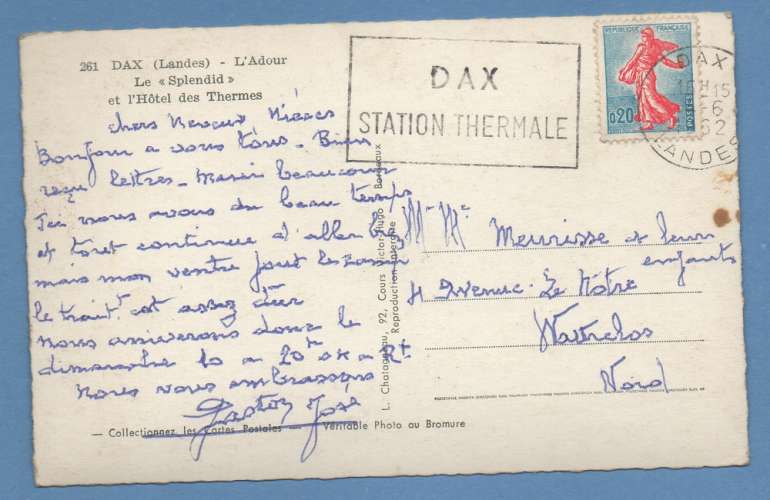 261 DAX (Landes) - L'Adour
Le « Splendid »
et l'Hôtel des Thermes
DAX
STATION THERMALE
REPUBLIQUE FRANÇAISE
0,20
POSTES
DAX
15
6
LANDES
chers Neveux Nièces
Bonjour a vous tous - Bien
reçu lettres - Merci beaucoup
Ici nous avons du beau temps
et tout continue d'aller
mais mon ventre
le trait^t est assez dur
nous arriverons donc le
dimanche 10 a 20^h
Nous vous embrassons
Gaston José
L. Chatagneau, 92, Cours Victor-Hugo - Bordeaux
Reproduction interdite
M^r M^e Meurisse et leurs
enfants
Avenue Le Nôtre
Nord
— Collectionnez les Cartes Postales — Véritable Photo au Bromure